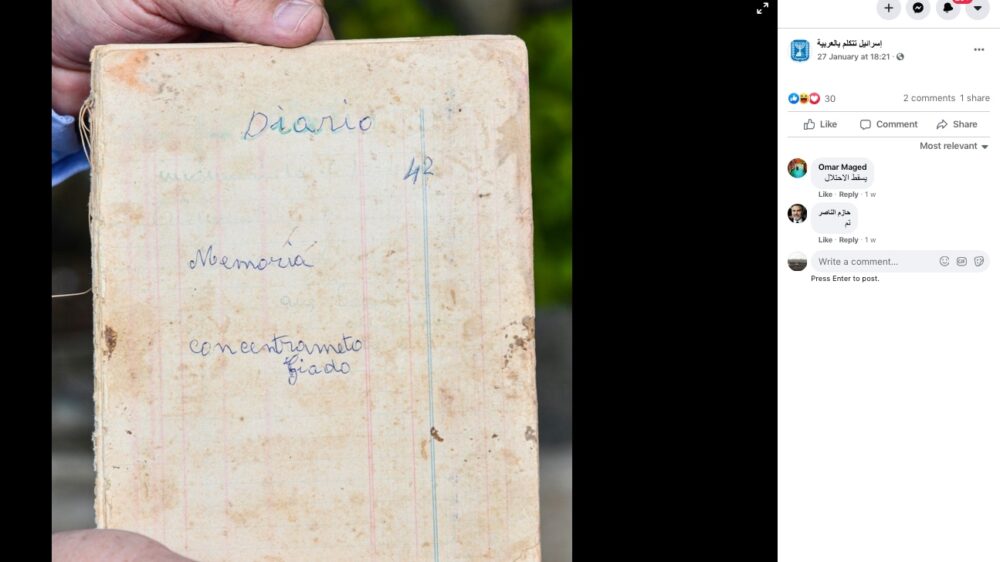 Diario
42
Memoria
concentrameto
Giado
إسرائيل تتكلم بالعربية
27 January at 18:21
30
2 comments 1 share
Like Comment Share
Most relevant
Omar Maged
يسقط الاحتلال
Like · Reply · 1 w
حازم الناصر
تم
Like · Reply · 1 w
Write a comment...
GIF
Press Enter to post.